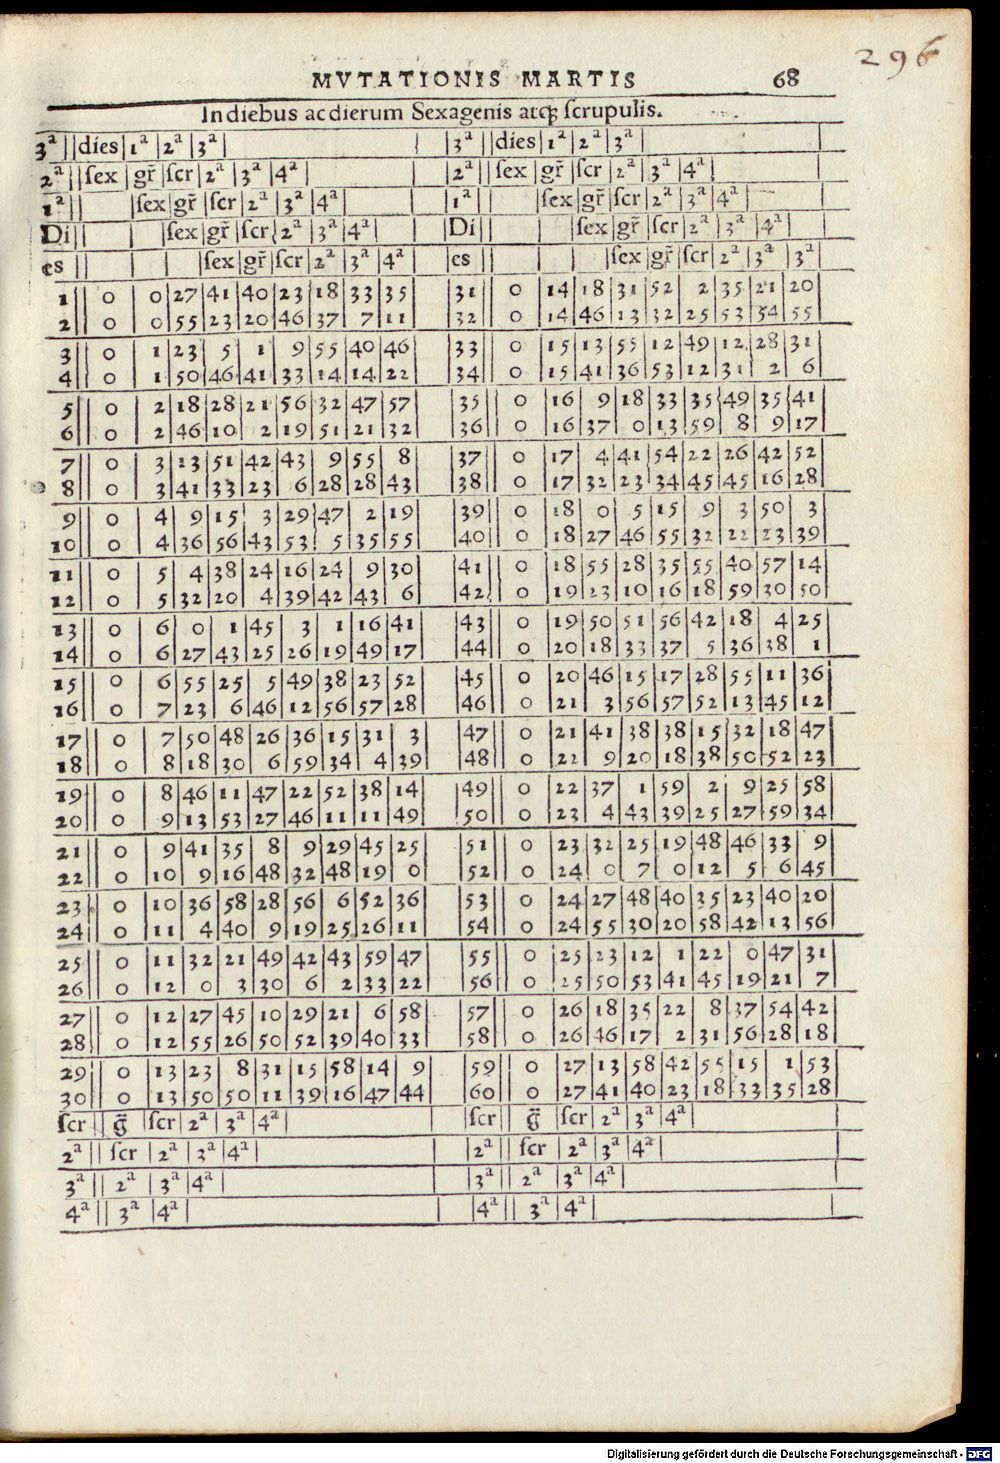 296
MVTATIONIS MARTIS 68
In diebus ac dierum Sexagenis atqꝫ ſcrupulis.
3ª || dies | 1ª | 2ª | 3ª | | 3ª || dies | 1ª | 2ª | 3ª |
2ª || ſex | gr̃ | ſcr | 2ª | 3ª | 4ª | | 2ª || ſex | gr̃ | ſcr | 2ª | 3ª | 4ª |
1ª || | ſex | gr̃ | ſcr | 2ª | 3ª | 4ª | | 1ª || | ſex | gr̃ | ſcr | 2ª | 3ª | 4ª |
Di || | | ſex | gr̃ | ſcr | 2ª | 3ª | 4ª | | Di || | | ſex | gr̃ | ſcr | 2ª | 3ª | 4ª |
es || | | | ſex | gr̃ | ſcr | 2ª | 3ª | 4ª | es || | | | ſex | gr̃ | ſcr | 2ª | 3ª | 3ª
1 || 0 | 0 | 27 | 41 | 40 | 23 | 18 | 33 | 35 | 31 || 0 | 14 | 18 | 31 | 52 | 2 | 35 | 21 | 20
2 || 0 | 0 | 55 | 23 | 20 | 46 | 37 | 7 | 11 | 32 || 0 | 14 | 46 | 13 | 32 | 25 | 53 | 54 | 55
3 || 0 | 1 | 23 | 5 | 1 | 9 | 55 | 40 | 46 | 33 || 0 | 15 | 13 | 55 | 12 | 49 | 12 | 28 | 31
4 || 0 | 1 | 50 | 46 | 41 | 33 | 14 | 14 | 22 | 34 || 0 | 15 | 41 | 36 | 53 | 12 | 31 | 2 | 6
5 || 0 | 2 | 18 | 28 | 21 | 56 | 32 | 47 | 57 | 35 || 0 | 16 | 9 | 18 | 33 | 35 | 49 | 35 | 41
6 || 0 | 2 | 46 | 10 | 2 | 19 | 51 | 21 | 32 | 36 || 0 | 16 | 37 | 0 | 13 | 59 | 8 | 9 | 17
7 || 0 | 3 | 13 | 51 | 42 | 43 | 9 | 55 | 8 | 37 || 0 | 17 | 4 | 41 | 54 | 22 | 26 | 42 | 52
8 || 0 | 3 | 41 | 33 | 23 | 6 | 28 | 28 | 43 | 38 || 0 | 17 | 32 | 23 | 34 | 45 | 45 | 16 | 28
9 || 0 | 4 | 9 | 15 | 3 | 29 | 47 | 2 | 19 | 39 || 0 | 18 | 0 | 5 | 15 | 9 | 3 | 50 | 3
10 || 0 | 4 | 36 | 56 | 43 | 53 | 5 | 35 | 55 | 40 || 0 | 18 | 27 | 46 | 55 | 32 | 22 | 23 | 39
11 || 0 | 5 | 4 | 38 | 24 | 16 | 24 | 9 | 30 | 41 || 0 | 18 | 55 | 28 | 35 | 55 | 40 | 57 | 14
12 || 0 | 5 | 32 | 20 | 4 | 39 | 42 | 43 | 6 | 42 || 0 | 19 | 23 | 10 | 16 | 18 | 59 | 30 | 50
13 || 0 | 6 | 0 | 1 | 45 | 3 | 1 | 16 | 41 | 43 || 0 | 19 | 50 | 51 | 56 | 42 | 18 | 4 | 25
14 || 0 | 6 | 27 | 43 | 25 | 26 | 19 | 49 | 17 | 44 || 0 | 20 | 18 | 33 | 37 | 5 | 36 | 38 | 1
15 || 0 | 6 | 55 | 25 | 5 | 49 | 38 | 23 | 52 | 45 || 0 | 20 | 46 | 15 | 17 | 28 | 55 | 11 | 36
16 || 0 | 7 | 23 | 6 | 46 | 12 | 56 | 57 | 28 | 46 || 0 | 21 | 3 | 56 | 57 | 52 | 13 | 45 | 12
17 || 0 | 7 | 50 | 48 | 26 | 36 | 15 | 31 | 3 | 47 || 0 | 21 | 41 | 38 | 38 | 15 | 32 | 18 | 47
18 || 0 | 8 | 18 | 30 | 6 | 59 | 34 | 4 | 39 | 48 || 0 | 22 | 9 | 20 | 18 | 38 | 50 | 52 | 23
19 || 0 | 8 | 46 | 11 | 47 | 22 | 52 | 38 | 14 | 49 || 0 | 22 | 37 | 1 | 59 | 2 | 9 | 25 | 58
20 || 0 | 9 | 13 | 53 | 27 | 46 | 11 | 11 | 49 | 50 || 0 | 23 | 4 | 43 | 39 | 25 | 27 | 59 | 34
21 || 0 | 9 | 41 | 35 | 8 | 9 | 29 | 45 | 25 | 51 || 0 | 23 | 32 | 25 | 19 | 48 | 46 | 33 | 9
22 || 0 | 10 | 9 | 16 | 48 | 32 | 48 | 19 | 0 | 52 || 0 | 24 | 0 | 7 | 0 | 12 | 5 | 6 | 45
23 || 0 | 10 | 36 | 58 | 28 | 56 | 6 | 52 | 36 | 53 || 0 | 24 | 27 | 48 | 40 | 35 | 23 | 40 | 20
24 || 0 | 11 | 4 | 40 | 9 | 19 | 25 | 26 | 11 | 54 || 0 | 24 | 55 | 30 | 20 | 58 | 42 | 13 | 56
25 || 0 | 11 | 32 | 21 | 49 | 42 | 43 | 59 | 47 | 55 || 0 | 25 | 23 | 12 | 1 | 22 | 0 | 47 | 31
26 || 0 | 12 | 0 | 3 | 30 | 6 | 2 | 33 | 22 | 56 || 0 | 25 | 50 | 53 | 41 | 45 | 19 | 21 | 7
27 || 0 | 12 | 27 | 45 | 10 | 29 | 21 | 6 | 58 | 57 || 0 | 26 | 18 | 35 | 22 | 8 | 37 | 54 | 42
28 || 0 | 12 | 55 | 26 | 50 | 52 | 39 | 40 | 33 | 58 || 0 | 26 | 46 | 17 | 2 | 31 | 56 | 28 | 18
29 || 0 | 13 | 23 | 8 | 31 | 15 | 58 | 14 | 9 | 59 || 0 | 27 | 13 | 58 | 42 | 55 | 15 | 1 | 53
30 || 0 | 13 | 50 | 50 | 11 | 39 | 16 | 47 | 44 | 60 || 0 | 27 | 41 | 40 | 23 | 18 | 33 | 35 | 28
ſcr || g̃ | ſcr | 2ª | 3ª | 4ª | | ſcr || g̃ | ſcr | 2ª | 3ª | 4ª |
2ª || ſcr | 2ª | 3ª | 4ª | | 2ª || ſcr | 2ª | 3ª | 4ª |
3ª || 2ª | 3ª | 4ª | | 3ª || 2ª | 3ª | 4ª |
4ª || 3ª | 4ª | | 4ª || 3ª | 4ª |
Digitalisierung gefördert durch die Deutsche Forschungsgemeinschaft - DFG